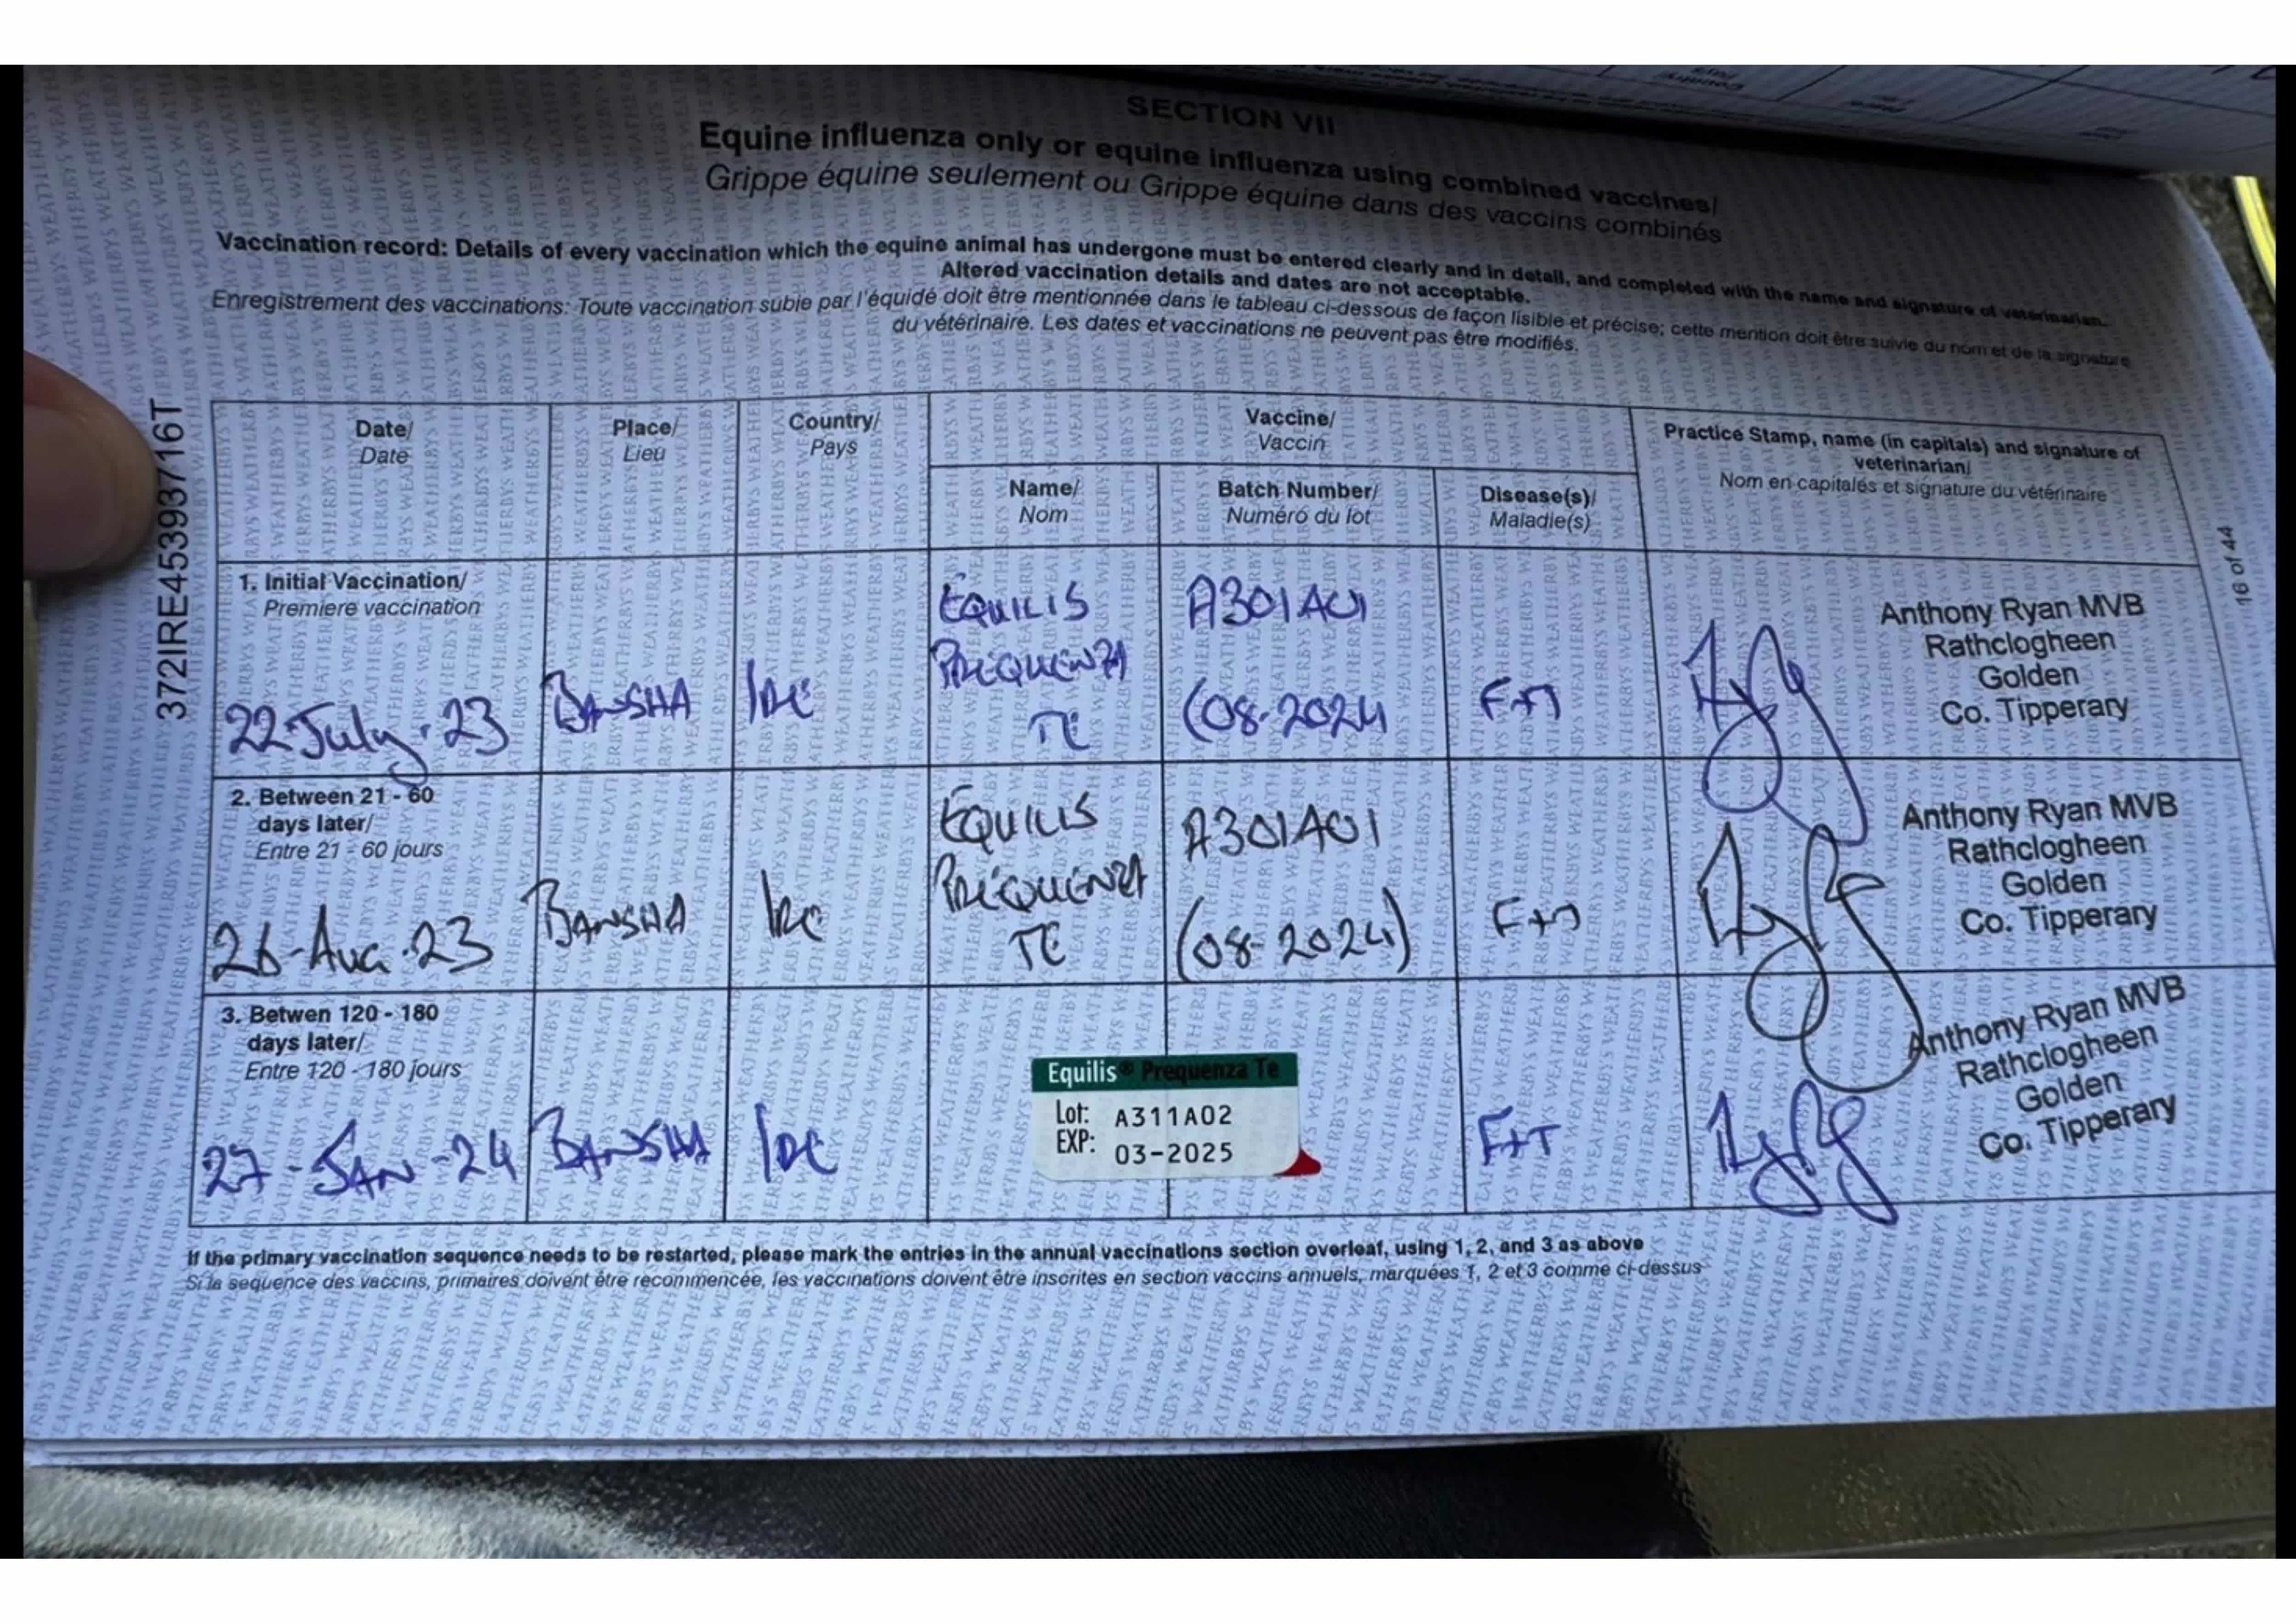 SECTION VII
Equine influenza only or equine influenza using combined vaccines/
Grippe équine seulement ou Grippe équine dans des vaccins combinés
Vaccination record: Details of every vaccination which the equine animal has undergone must be entered clearly and in detail, and completed with the name and signature of veterinarian.
Altered vaccination details and dates are not acceptable.
Enregistrement des vaccinations: Toute vaccination subie par l'équidé doit être mentionnée dans le tableau ci-dessous de façon lisible et précise; cette mention doit être suivie du nom et de la signature
du vétérinaire. Les dates et vaccinations ne peuvent pas être modifiés.
372IRE45393716T
16 of 44
Date/
Date
Place/
Lieu
Country/
Pays
Vaccine/
Vaccin
Name/
Nom
Batch Number/
Numéro du lot
Disease(s)/
Maladie(s)
Practice Stamp, name (in capitals) and signature of
veterinarian/
Nom en capitalés et signature du vétérinaire
1. Initial Vaccination/
Premiere vaccination
22-July-23
BANSHA
IRE
EQUILIS
PREQUENZA
TE
A301A01
(08-2024
F+T
Anthony Ryan MVB
Rathclogheen
Golden
Co. Tipperary
2. Between 21 - 60
days later/
Entre 21 - 60 jours
26-Aug-23
BANSHA
IRE
EQUILIS
PREQUENZA
TE
A301A01
(08-2024)
F+T
Anthony Ryan MVB
Rathclogheen
Golden
Co. Tipperary
3. Betwen 120 - 180
days later/
Entre 120 - 180 jours
27-JAN-24
BANSHA
IRE
Equilis® Prequenza Te
Lot: A311A02
EXP: 03-2025
F+T
Anthony Ryan MVB
Rathclogheen
Golden
Co. Tipperary
If the primary vaccination sequence needs to be restarted, please mark the entries in the annual vaccinations section overleaf, using 1, 2, and 3 as above
Si la sequence des vaccins, primaires doivent être recommencée, les vaccinations doivent être inscrites en section vaccins annuels, marquées 1, 2 et 3 comme ci-dessus